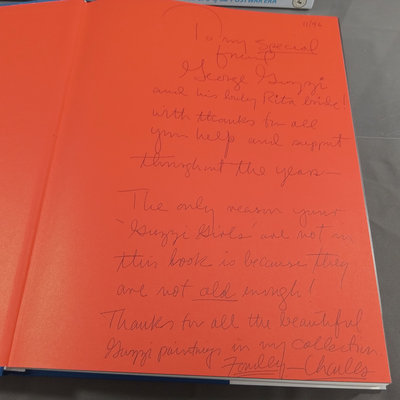 OF THE POSTWAR ERA
11/96
To my special
friend
George Guzzi
and his lovely Rita bride!
with thanks for all
your help and support
throughout the years—
The only reason your
'Guzzi Girls' are not in
this book is because they
are not old enough!
Thanks for all the beautiful
Guzzi paintings in my collection.
Fondly— Charles